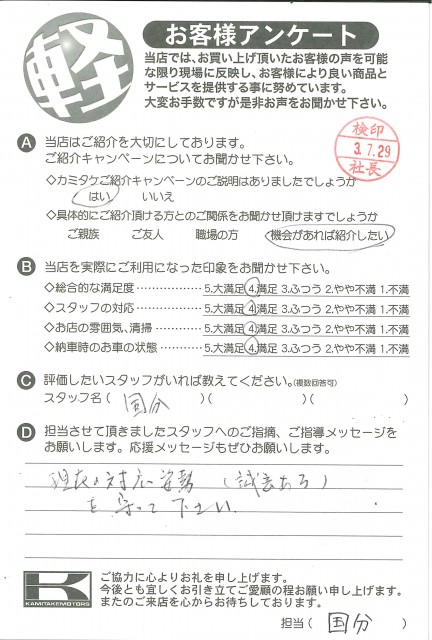 軽
お客様アンケート
当店では、お買い上げ頂いたお客様の声を可能
な限り現場に反映し、お客様により良い商品と
サービスを提供する事に努めています。
大変お手数ですが是非お声をお聞かせ下さい。
検印
3.7.29
社長
A 当店はご紹介を大切にしております。
ご紹介キャンペーンについてお聞かせ下さい。
◇カミタケご紹介キャンペーンのご説明はありましたでしょうか
はい いいえ
◇具体的にご紹介頂ける方とのご関係をお聞かせ頂けますでしょうか
ご親族 ご友人 職場の方 機会があれば紹介したい
B 当店を実際にご利用になった印象をお聞かせ下さい。
◇総合的な満足度 ・・・・・・・・・・・・ 5.大満足 4.満足 3.ふつう 2.やや不満 1.不満
◇スタッフの対応 ・・・・・・・・・・・・ 5.大満足 4.満足 3.ふつう 2.やや不満 1.不満
◇お店の雰囲気、清掃 ・・・・・・・・ 5.大満足 4.満足 3.ふつう 2.やや不満 1.不満
◇納車時のお車の状態 ・・・・・・・・ 5.大満足 4.満足 3.ふつう 2.やや不満 1.不満
C 評価したいスタッフがいれば教えてください。(複数回答可)
スタッフ名 ( 国分 )( )( )
D 担当させて頂きましたスタッフへのご指摘、ご指導メッセージを
お願いします。応援メッセージもぜひお願いします。
現在の対応姿勢 (誠意ある)
を守って下さい.
K
KAMITAKEMOTORS
ご協力に心よりお礼を申し上げます。
今後とも宜しくお引き立てご愛顧の程お願い申し上げます。
またのご来店を心からお待ちしております。
担当 ( 国分 )